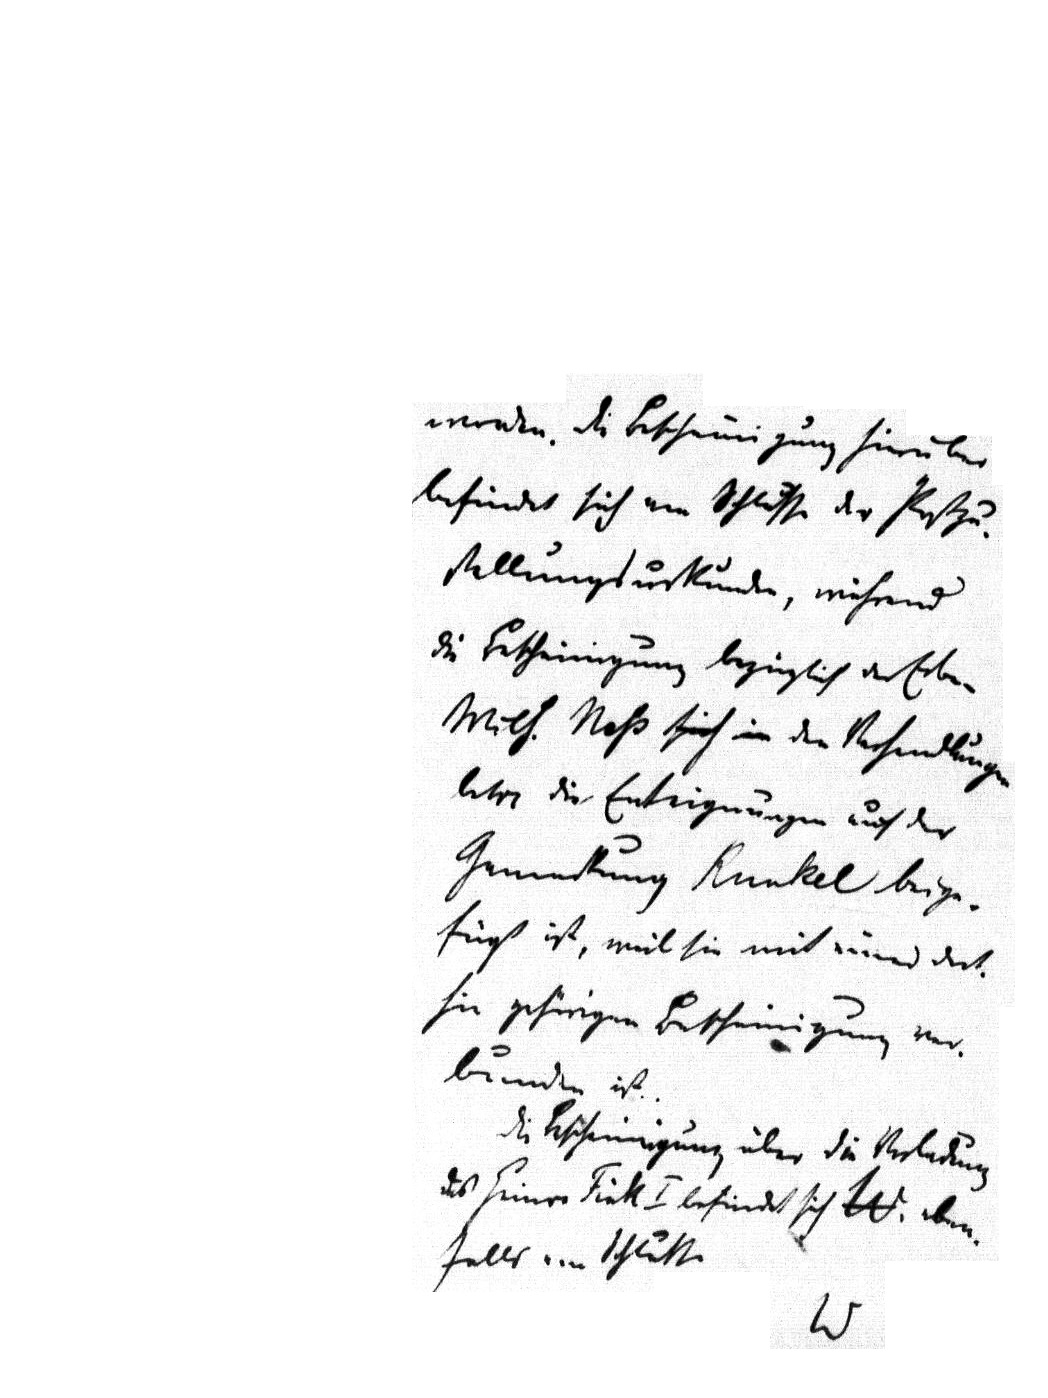 worden. Die Bescheinigung hierüber
befindet sich am Schlusse der Postzu-
stellungsurkunden, während
die Bescheinigung bezüglich der Erben
Wilh. Neß sich in den Verhandlungen
betr die Enteignungen auf der
Gemarkung Runkel beige-
fügt ist, weil sie mit einer dort-
hin gehörigen Bescheinigung ver-
bunden ist.
Die Bescheinigung über die Vorladung
des Heinr Fink I befindet sich W. eben-
falls am Schlusse
W